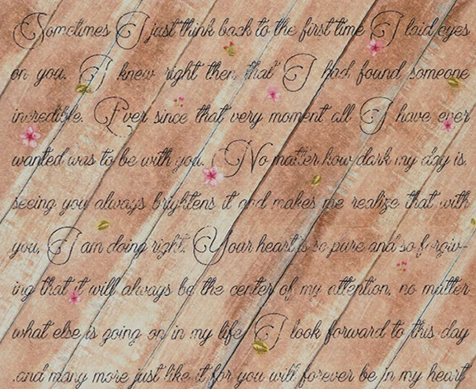 Sometimes I just think back to the first time I laid eyes
on you. I knew right then that I had found someone
incredible. Ever since that very moment all I have ever
wanted was to be with you. No matter how dark my day is,
seeing you always brightens it and makes me realize that with
you, I am doing right. Your heart is so pure and so forgiv-
ing that it will always be the center of my attention, no matter
what else is going on in my life. I look forward to this day
and many more just like it for you will forever be in my heart